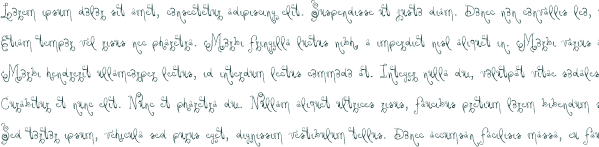 Lorem ipsum dolor sit amet, consectetur adipiscing elit. Suspendisse et justo diam. Donec non convallis leo,
Etiam tempor vel risus nec pharetra. Morbi fringilla luctus nibh, a imperdiet nisl aliquet in. Morbi varius a
Morbi hendrerit ullamcorper lectus, id interdum lectus commodo at. Integer nulla dui, volutpat vitae sodales
Curabitur et nunc elit. Nunc et pharetra dui. Nullam aliquet ultrices risus, faucibus pretium lorem bibendum
Sed tortor ipsum, vehicula sed purus eget, dignissim vestibulum tellus. Donec accumsan facilisis massa, eu